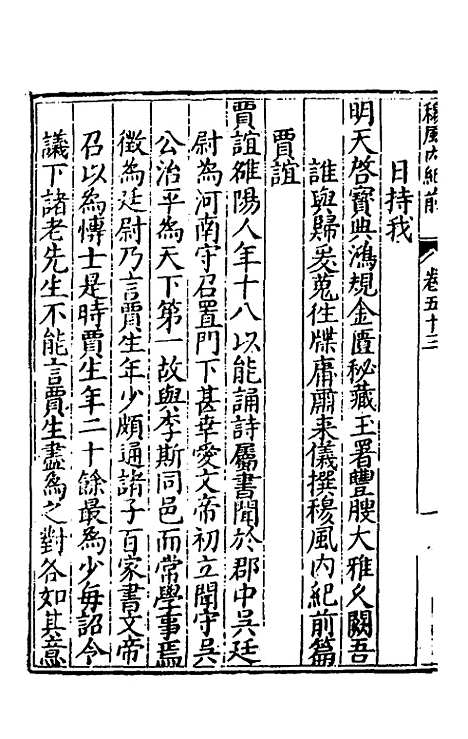 穆風內紀前
卷五十三
日持我
明天啓寶典鴻規金匱秘藏玉署豐腴大雅久闕吾
誰與歸爰蒐佳牒庸爾来儀撰穆風內紀前篇
賈誼
賈誼雒陽人年十八以能誦詩屬書聞於郡中吳廷
尉為河南守召置門下甚幸愛文帝初立聞守吳
公治平為天下第一故與李斯同邑而常學事焉
徵為廷尉乃言賈生年少頗通諸子百家書文帝
召以為愽士是時賈生年二十餘最為少每詔令
議下諸老先生不能言賈生盡為之對各如其意